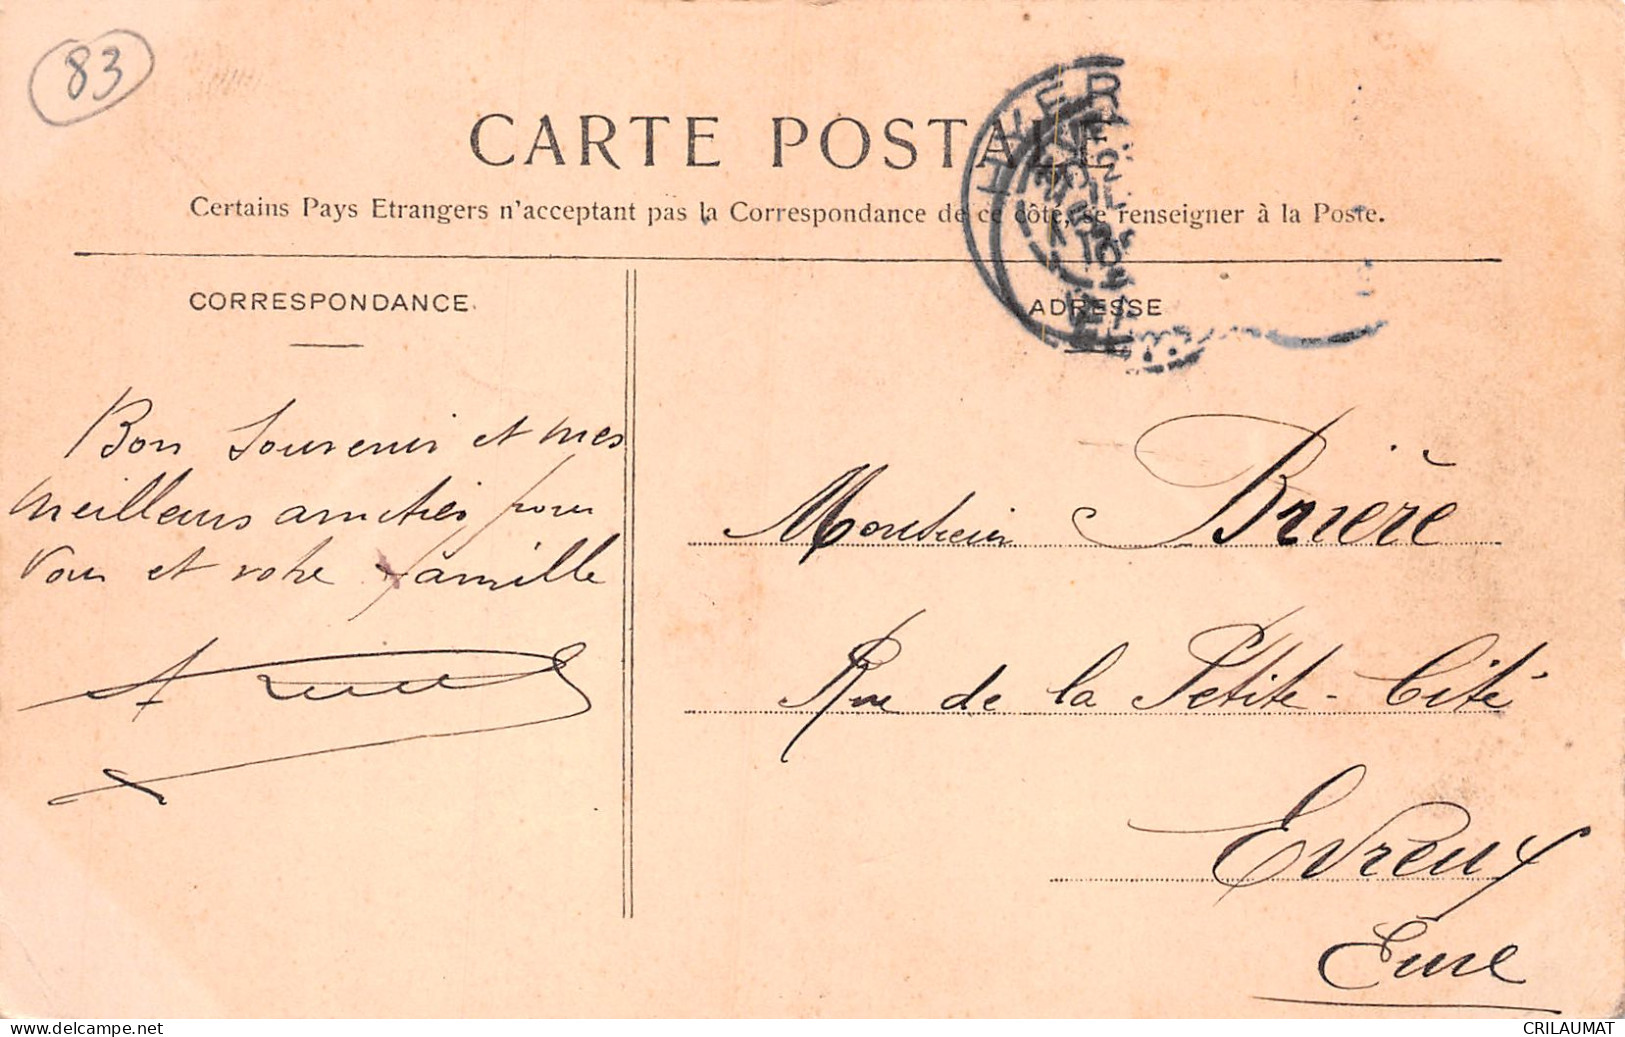 83
CARTE POSTALE
Certains Pays Etrangers n'acceptant pas la Correspondance de ce côté, se renseigner à la Poste.
CORRESPONDANCE
ADRESSE
HYER
Bon Souvenir et mes
meilleurs amitiés pour
vous et votre famille
Monsieur Brière
Rue de la Petite-Cité
Evreux
Eure
www.delcampe.net
CRILAUMAT